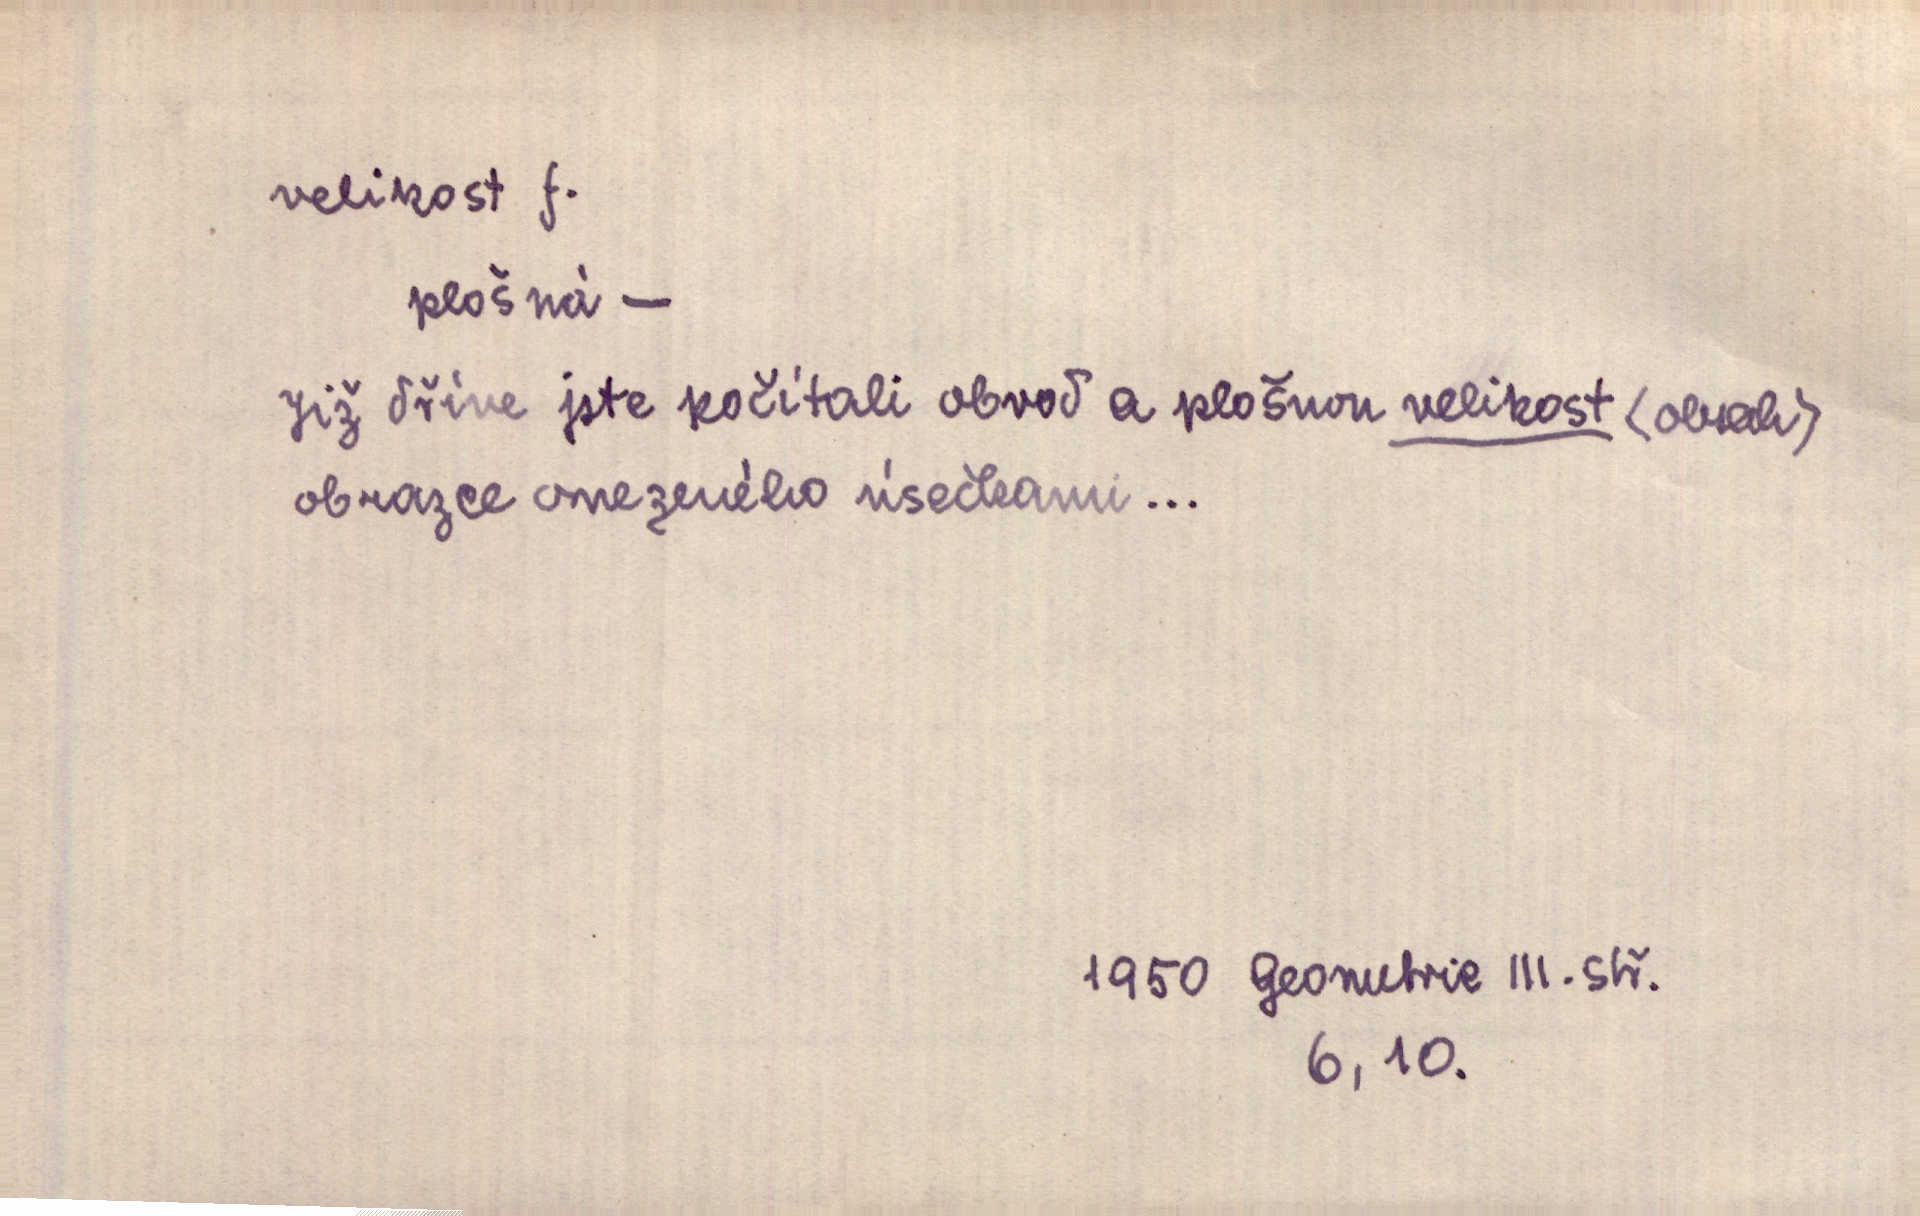 velikost f.
plošná —
Již dříve jste počítali obvod a plošnou velikost (obsah)
obrazce omezeného úsečkami...
1950 Geometrie III. stř.
6, 10.